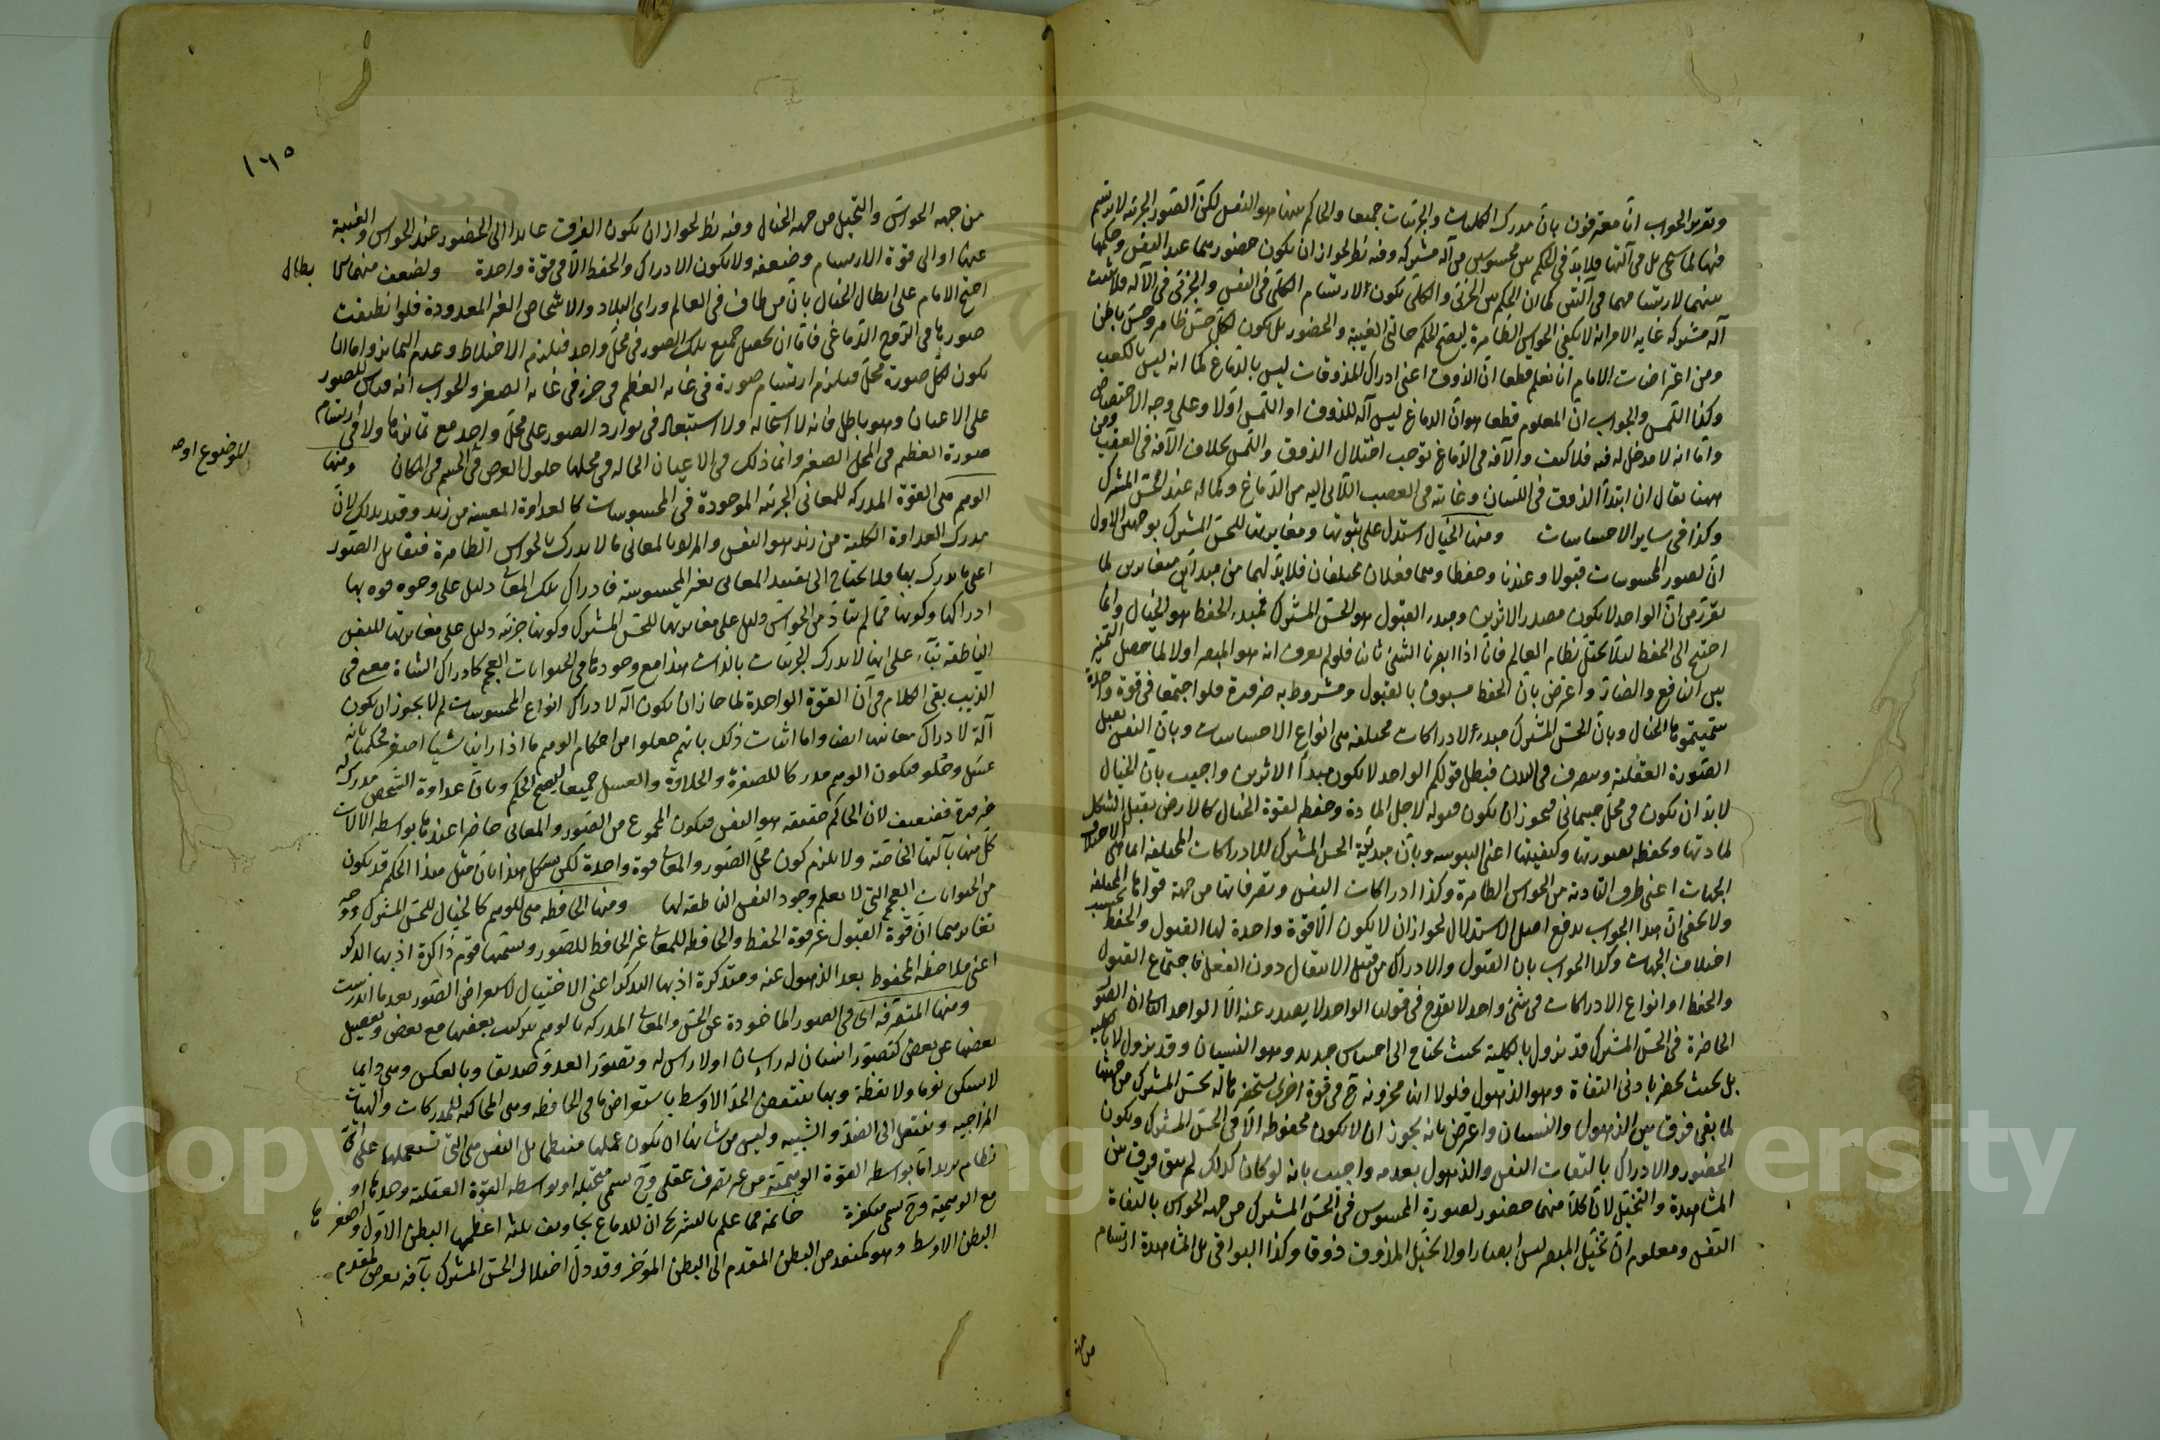 وتقرير الجواب انا معترفون بان مدرك الكليات والجزئيات جميعا والحاكم بينها هو النفس لكن الصور الجزئية لا ترتسم
فيها لما سيجئ بل في آلتها فلا بد في الحكم بين محسوسين من آلة مشتركة وفيه نظر لجواز ان يكون حضورهما عند النفس وحكمها
بينهما لارتسامهما في آلتين كما ان الحكم بين الجزئي والكلي يكون لارتسام الكلي في النفس والجزئي في الآلة فلا تثبت
آلة مشتركة غاية الامر انه لا يكفي الحواس الظاهرة ليصح الحكم حالتي الغيبة والحضور بل يكون لكل حس ظاهر وحس باطن
ومن اعتراضات الامام انا نعلم قطعا ان الذوق اعني ادراك المذوقات ليس بالدماغ كما انه ليس بالكعب
وكذا اللمس والجواب ان المعلوم قطعا هو ان الدماغ ليس آلة للذوق او اللمس اولا وعلى وجه الاختصاص
واما انه لا مدخل له فيه فلا كيف والآفة في الدماغ توجب اختلال الذوق واللمس بخلاف الآفة في العقب ومن
ههنا يقال ان ابتدا الذوق في اللسان وغايته في العصب الآتي اليه من الدماغ وكماله عند الحس المشترك
وكذا في ساير الاحساسات ومنها الخيال استدل على ثبوتها ومغايرتها للحس المشترك بوجهين الاول
ان لصور المحسوسات قبولا وعندنا وحفظا وهما فعلان مختلفان فلا بد لهما من مبدأين متغايرين لما
تقرر من ان الواحد لا يكون مصدر الاثرين ومبدء القبول هو الحس المشترك فمبدء الحفظ هو الخيال وانما
احتيج الى الحفظ لئلا يختل نظام العالم فانا اذا ابصرنا الشئ ثانيا فلو لم نعرف انه هو المبصر اولا لما حصل التميز
بين النافع والضار واعترض بان الحفظ مسبوق بالقبول ومشروط به ضرورة فلو اجتمعا في قوة واحدة
سميتموها الخيال وبان الحس المشترك مبدء لادراكات مختلفة هي انواع الاحساسات وبان النفس تقبل
الصورة العقلية وتتصرف في البدن فبطل قولكم الواحد لا يكون مبدأ الاثرين واجيب بان الخيال
لا بد ان يكون في محل جسماني فيجوز ان يكون قبوله لاجل المادة وحفظه لقوة الخيال كالارض يقبل الشكل
لمادتها وتحفظه بصورتها وكيفيتها اعني اليبوسة وبان مبدئية الحس المشترك للادراكات المختلفة انما هي لاختلاف
الجهات اعني طرق التادية من الحواس الظاهرة وكذا ادراكات النفس وتصرفاتها من جهة قواها المختلفة
ولا يخفى ان هذا الجواب يدفع اصل الاستدلال لجواز ان لا يكون الا قوة واحدة لها القبول والحفظ بحسب
اختلاف الجهات وكذا الجواب بان القبول والادراك من قبيل الانفعال دون الفعل فاجتماع القبول
والحفظ او انواع الادراكات في شئ واحد لا يقدح في قولنا الواحد لا يصدر عنه الا الواحد الثاني ان الصور
الحاضرة في الحس المشترك قد يزول بالكلية بحيث يحتاج الى احساس جديد وهو النسيان وقد يزول لا بالكلية
بل بحيث يحضر بادنى التفاة وهو الذهول فلولا انها مخزونة ح في قوة اخرى يستحضرها له الحس المشترك من جهتها
لما بقى فرق بين الذهول والنسيان واعترض بانه يجوز ان لا يكون محفوظة الا في الحس المشترك ويكون
الحضور والادراك بالتفات النفس والذهول بعدمه واجيب بانه لو كان كذلك لم يبق فرق بين
المشاهدة والتخيل لان كلا منهما حضور لصورة المحسوس في الحس المشترك من جهة الحواس بالتفاة
النفس ومعلوم ان تخيل المبصر ليس ابصارا ولا تخيل المذوق ذوقا وكذا البواقي بل المشاهدة ارتسام
من جهة
١٦٥
من جهة الحواس والتخيل من جهة الخيال وفيه نظر لجواز ان يكون الفرق عايدا الى الحضور عند الحواس والغيبة
عنها او الى قوة الارتسام وضعفه ولا يكون الادراك والحفظ الا في قوة واحدة ولضعف
احتج الامام على ابطال الخيال بان من طاف في العالم وراى البلاد والاشخاص الغير المعدودة فلو انطبقت
صورها في الروح الدماغي فاما ان يحصل جميع تلك الصور في محل واحد فيلزم الاختلاط وعدم التمايز واما ان
يكون لكل صورة محل فيلزم ارتسام صورة في غاية العظم في جزء في غاية الصغر والجواب انه قياس للصور
على الاعيان وهو باطل فانه لا استحالة ولا استبعاد في توارد الصور على محل واحد مع تمايزها ولا في ارتسام
صورة العظيم في المحل الصغير وانما ذلك في الاعيان الحالة في محلها حلول العرض في الجسم في المكان ومنها
الوهم هي القوة المدركة للمعاني الجزئية الموجودة في المحسوسات كالعداوة المعينة من زيد وقيد بذلك لان
مدرك العداوة الكلية من زيد هو النفس والمراد بالمعاني ما لا يدرك بالحواس الظاهرة فيقابل الصور
اعني ما يدرك بها فلا يحتاج الى تقييد المعاني بغير المحسوسة فادراك تلك المعاني دليل على وجود قوة بها
ادراكها وكونها مما لم يتأد من الحواس دليل على مغايرتها للحس المشترك وكونها جزئية دليل على مغايرتها للنفس
الناطقة بناء على انها لا تدرك الجزئيات بالذات هذا مع وجودها في الحيوانات العجم كادراك الشاة معنى في
الذيب بقى الكلام في ان القوة الواحدة لما جاز ان يكون آلة لادراك انواع المحسوسات لم لا يجوز ان يكون
آلة لادراك معانيها ايضا واما اثبات ذلك بانهم جعلوا من احكام الوهم ما اذا راينا شيئا اصفر فحكمنا بانه
عسل وحلو فيكون الوهم مدركا للصفرة والحلاوة والعسل جميعا ليصح الحكم وبان عداوة الشخص مدركة له
ضرورة فضعيف لان الحاكم حقيقة هو النفس فيكون المجموع من الصور والمعاني حاضرا عندها بواسطة الآلات
كل منها بآلتها الخاصة ولا يلزم كون محل الصور والمعاني قوة واحدة لكن يشكل هذا بان مثل هذا الحكم قد يكون
من الحيوانات العجم التي لا يعلم وجود النفس الناطقة لها ومنها الحافظة هي للوهم كالخيال للحس المشترك ووجه
تغايرهما ان قوة القبول غير قوة الحفظ والحافظ للمعاني غير الحافظ للصور ويسميها قوم ذاكرة اذ بها الذكر
اعني ملاحظة المحفوظ بعد الذهول عنه ومتذكرة اذ بها التذكر اعني الاحتيال لاستعراض الصور بعد ما اندرست
ومنها المتصرفة اي في الصور الماخوذة عن الحس والمعاني المدركة بالوهم بتركيب بعضها مع بعض وتفصيل
بعضها عن بعض كتصور انسان له راسان او لا راس له وتصور العدو صديقا وبالعكس وهي دايما
لا تسكن نوما ولا يقظة وبها يقتنص الحد الاوسط باستعراض ما في الحافظة وهي المحاكية للمدركات والهيئات
المزاجية وينتقل الى الضد والشبيه وليس من شانها ان يكون عملها منتظما بل النفس هي التي تستعملها على اي
نظام يريد اما بواسطة القوة الوهمية من غير تصرف عقلي وح تسمى متخيلة او بواسطة القوة العقلية وحدها او
مع الوهمية وح تسمى مفكرة خاتمة مما علم بالتشريح ان للدماغ تجاويف ثلثة اعظمها البطن الاول واصغرها
البطن الاوسط وهو كمنفذ من البطن المقدم الى البطن المؤخر وقد دل اختلال الحس المشترك بآفة تعرض لمقدم